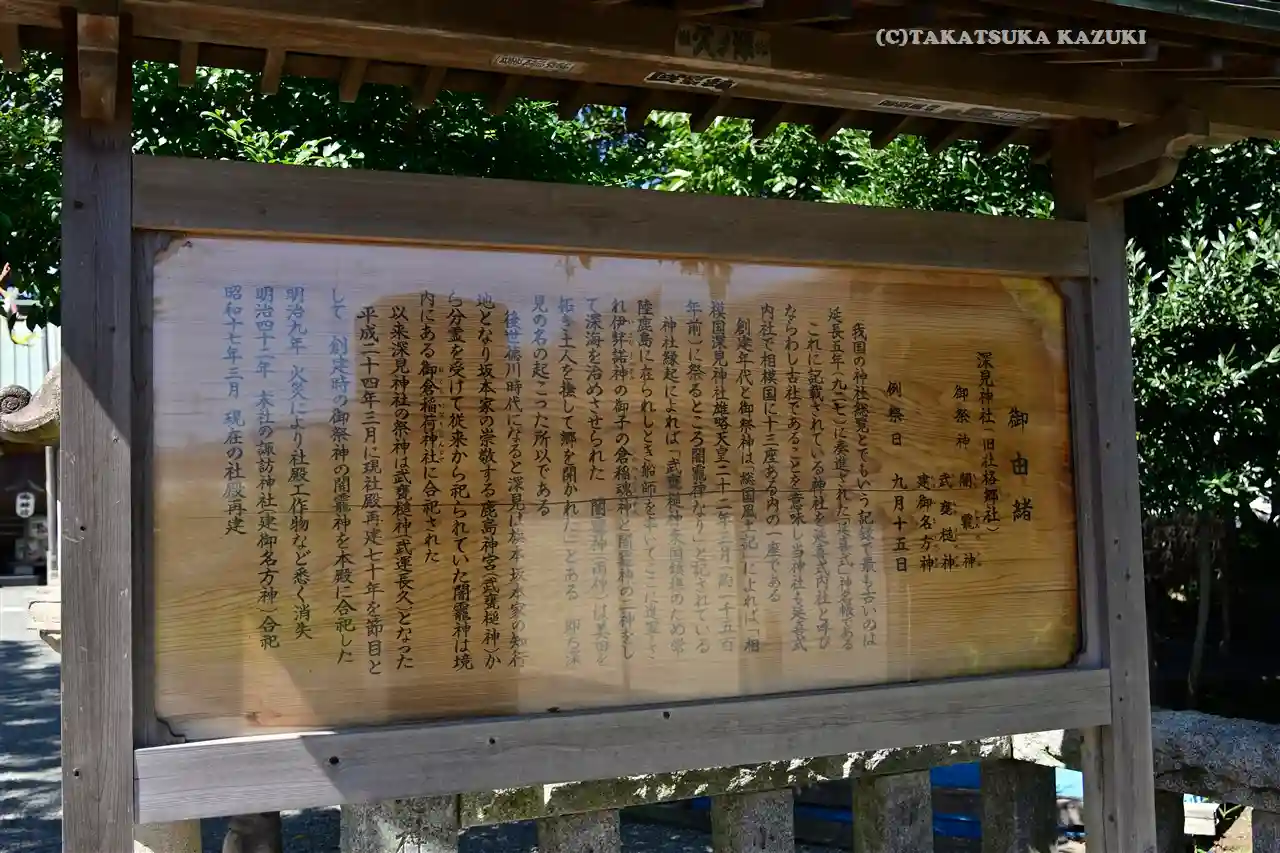 (C)TAKATSUKA KAZUKI
御由緒
深見神社(旧社格郷社)
御祭神 闇龗神
武甕槌神
建御名方神
例祭日 九月十五日
我国の神社総覧とでもいう記録で最も古いのは
延長五年(九二七)に奏進された「延喜式」神名帳である
これに記載されている神社を延喜式内社と呼び
ならわし古社であることを意味し当神社も延喜式
内社で相模国に十三座ある内の一座である
創建年代と御祭神は「総国風土記」によれば「相
模国深見神社雄略天皇二十二年三月(約一千五百
年前)に祭るところ闇龗神なり」と記されている
神社縁起によれば「武甕槌神東国鎮撫のため常
陸鹿島に在られしとき船師を率いてここに進軍さ
れ伊弉諾神の御子の倉稲魂神と闇龗神の二神をし
て深海を治めさせられた 闇龗神(雨神)は美田を
拓き土人を撫して郷を開かれた」とある 即ち深
見の名の起こった所以である
後世徳川時代になると深見は旗本坂本家の知行
地となり坂本家の崇敬する鹿島神宮(武甕槌神)か
ら分霊を受けて従来から祀られていた闇龗神は境
内にある御倉稲荷神社に合祀された
以来深見神社の祭神は武甕槌神(武運長久)となった
平成二十四年三月に現社殿再建七十年を節目と
して 創建時の御祭神の闇龗神を本殿に合祀した
明治九年 火災により社殿工作物など悉く消失
明治四十二年 末社の諏訪神社(建御名方神)合祀
昭和十七年三月 現在の社殿再建